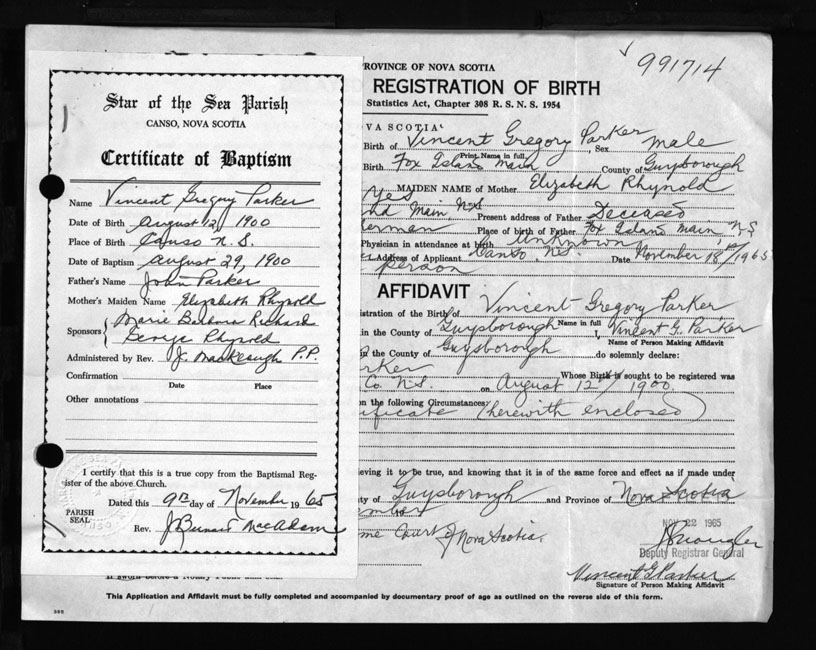 Star of the Sea Parish
CANSO, NOVA SCOTIA
Certificate of Baptism
Name Vincent Gregory Parker
Date of Birth August 12, 1900
Place of Birth Canso N. S.
Date of Baptism August 29, 1900
Father's Name John Parker
Mother's Maiden Name Elizabeth Rhynold
Sponsors { Marie Barbara Richard
George Rhynold
Administered by Rev. J. MacKeough P.P.
Confirmation
Date Place
Other annotations
I certify that this is a true copy from the Baptismal Reg-
ister of the above Church.
Dated this 9th day of November 1965
PARISH
SEAL
Rev. J Bernard MacAdam
991714
ROVINCE OF NOVA SCOTIA
REGISTRATION OF BIRTH
Statistics Act, Chapter 308 R. S. N. S. 1954
VA SCOTIA
Birth of Vincent Gregory Parker, Sex male
Print Name in full
Birth Fox Island Main County of Guysborough
Yes MAIDEN NAME of Mother Elizabeth Rhynold
nd Main, N.S Present address of Father Deceased
erman Place of birth of Father Fox Island Main, N S
Physician in attendance at birth Unknown
Address of Applicant Canso N.S. Date November 18th/1965
person
AFFIDAVIT
istration of the Birth of Vincent Gregory Parker
Name in full
in the County of Guysborough I, Vincent G. Parker
Name of Person Making Affidavit
the County of Guysborough do solemnly declare:
rker Whose Birth is sought to be registered was
Co. N.S. on August 12th/1900
on the following Circumstances:
ificate (herewith enclosed)
ieving it to be true, and knowing that it is of the same force and effect as if made under
ty of Guysborough and Province of Nova Scotia
me Court of Nova Scotia.
NOV 22 1965
Deputy Registrar General
Vincent G Parker
Signature of Person Making Affidavit
This Application and Affidavit must be fully completed and accompanied by documentary proof of age as outlined on the reverse side of this form.